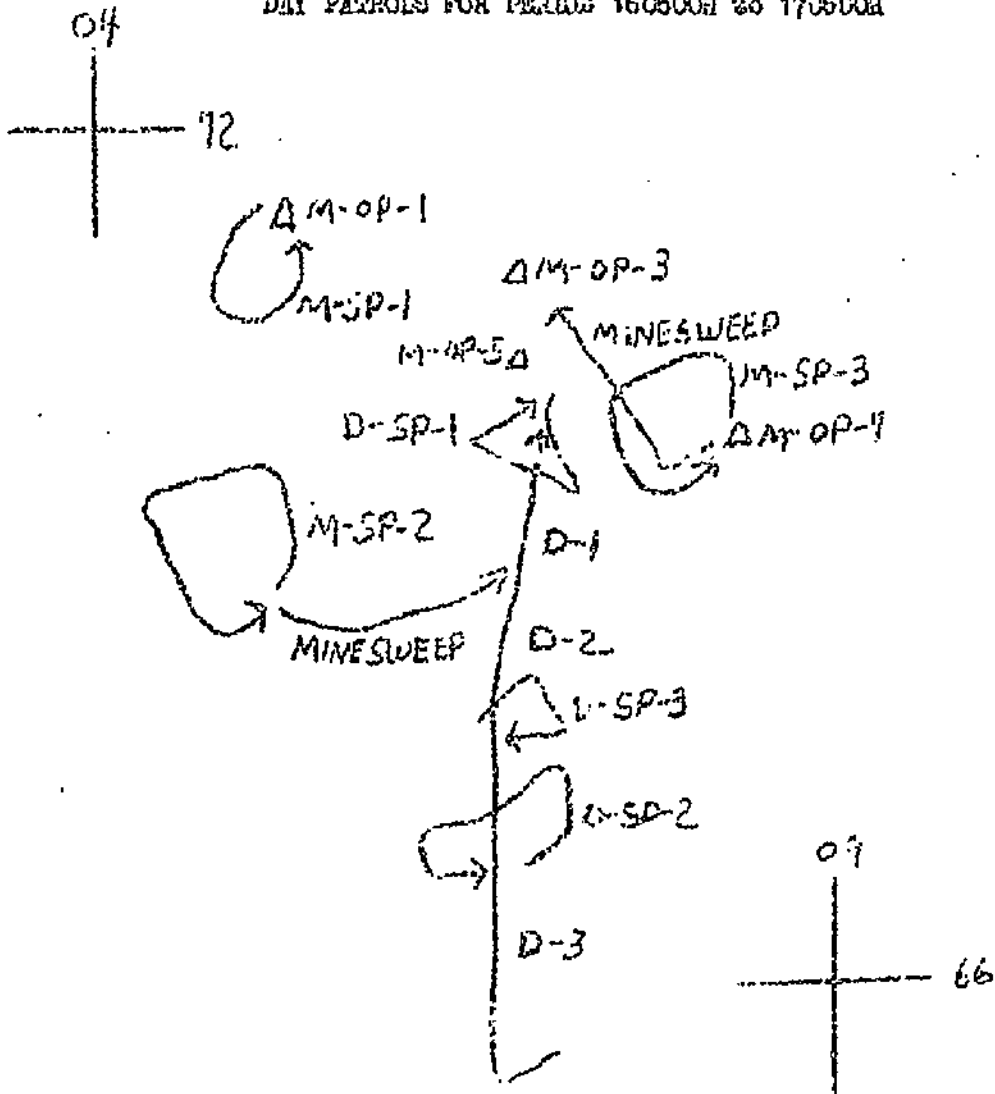 DAY PATROLS FOR PERIOD 160500H to 170500H
04
72
M-OP-1
M-SP-1
M-OP-3
MINESWEEP
M-OP-5
M-SP-3
D-SP-1
M-SP-2
D-1
MINESWEEP
D-2
SP-3
SP-2
D-3
66